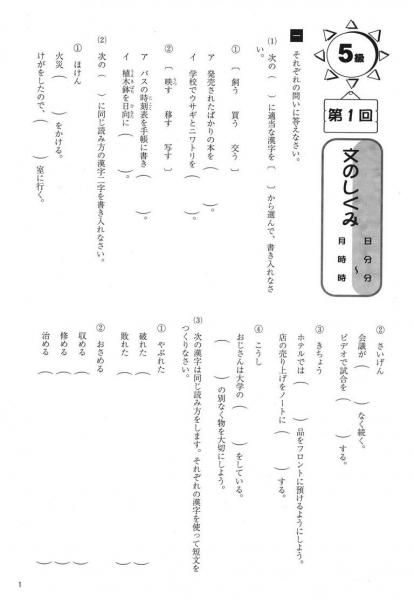 5級
第1回
文のしくみ
月 日
時 分
〜
時 分
一 それぞれの問いに答えなさい。
(1) 次の（ ）に適当な漢字を〔 〕から選んで、書き入れなさ
い。
① 〔 飼う 買う 交う 〕
ア 発売されたばかりの本を（ ）。
イ 学校でウサギとニワトリを（ ）。
② 〔 映す 移す 写す 〕
ア バスの時刻表を手帳に書き（ ）。
イ 植木鉢を日向に（ ）。
(2) 次の（ ）に同じ読み方の漢字二字を書き入れなさい。
① ほけん
火災（ ）をかける。
けがをしたので、（ ）室に行く。
② さいげん
会議が（ ）なく続く。
ビデオで試合を（ ）する。
③ きちょう
ホテルでは（ ）品をフロントに預けるようにしよう。
店の売り上げをノートに（ ）する。
④ こうし
おじさんは大学の（ ）をしている。
（ ）の別なく物を大切にしよう。
(3) 次の漢字は同じ読み方をします。それぞれの漢字を使って短文を
つくりなさい。
① やぶれた
破れた（ ）
敗れた（ ）
② おさめる
収める（ ）
修める（ ）
治める（ ）
1